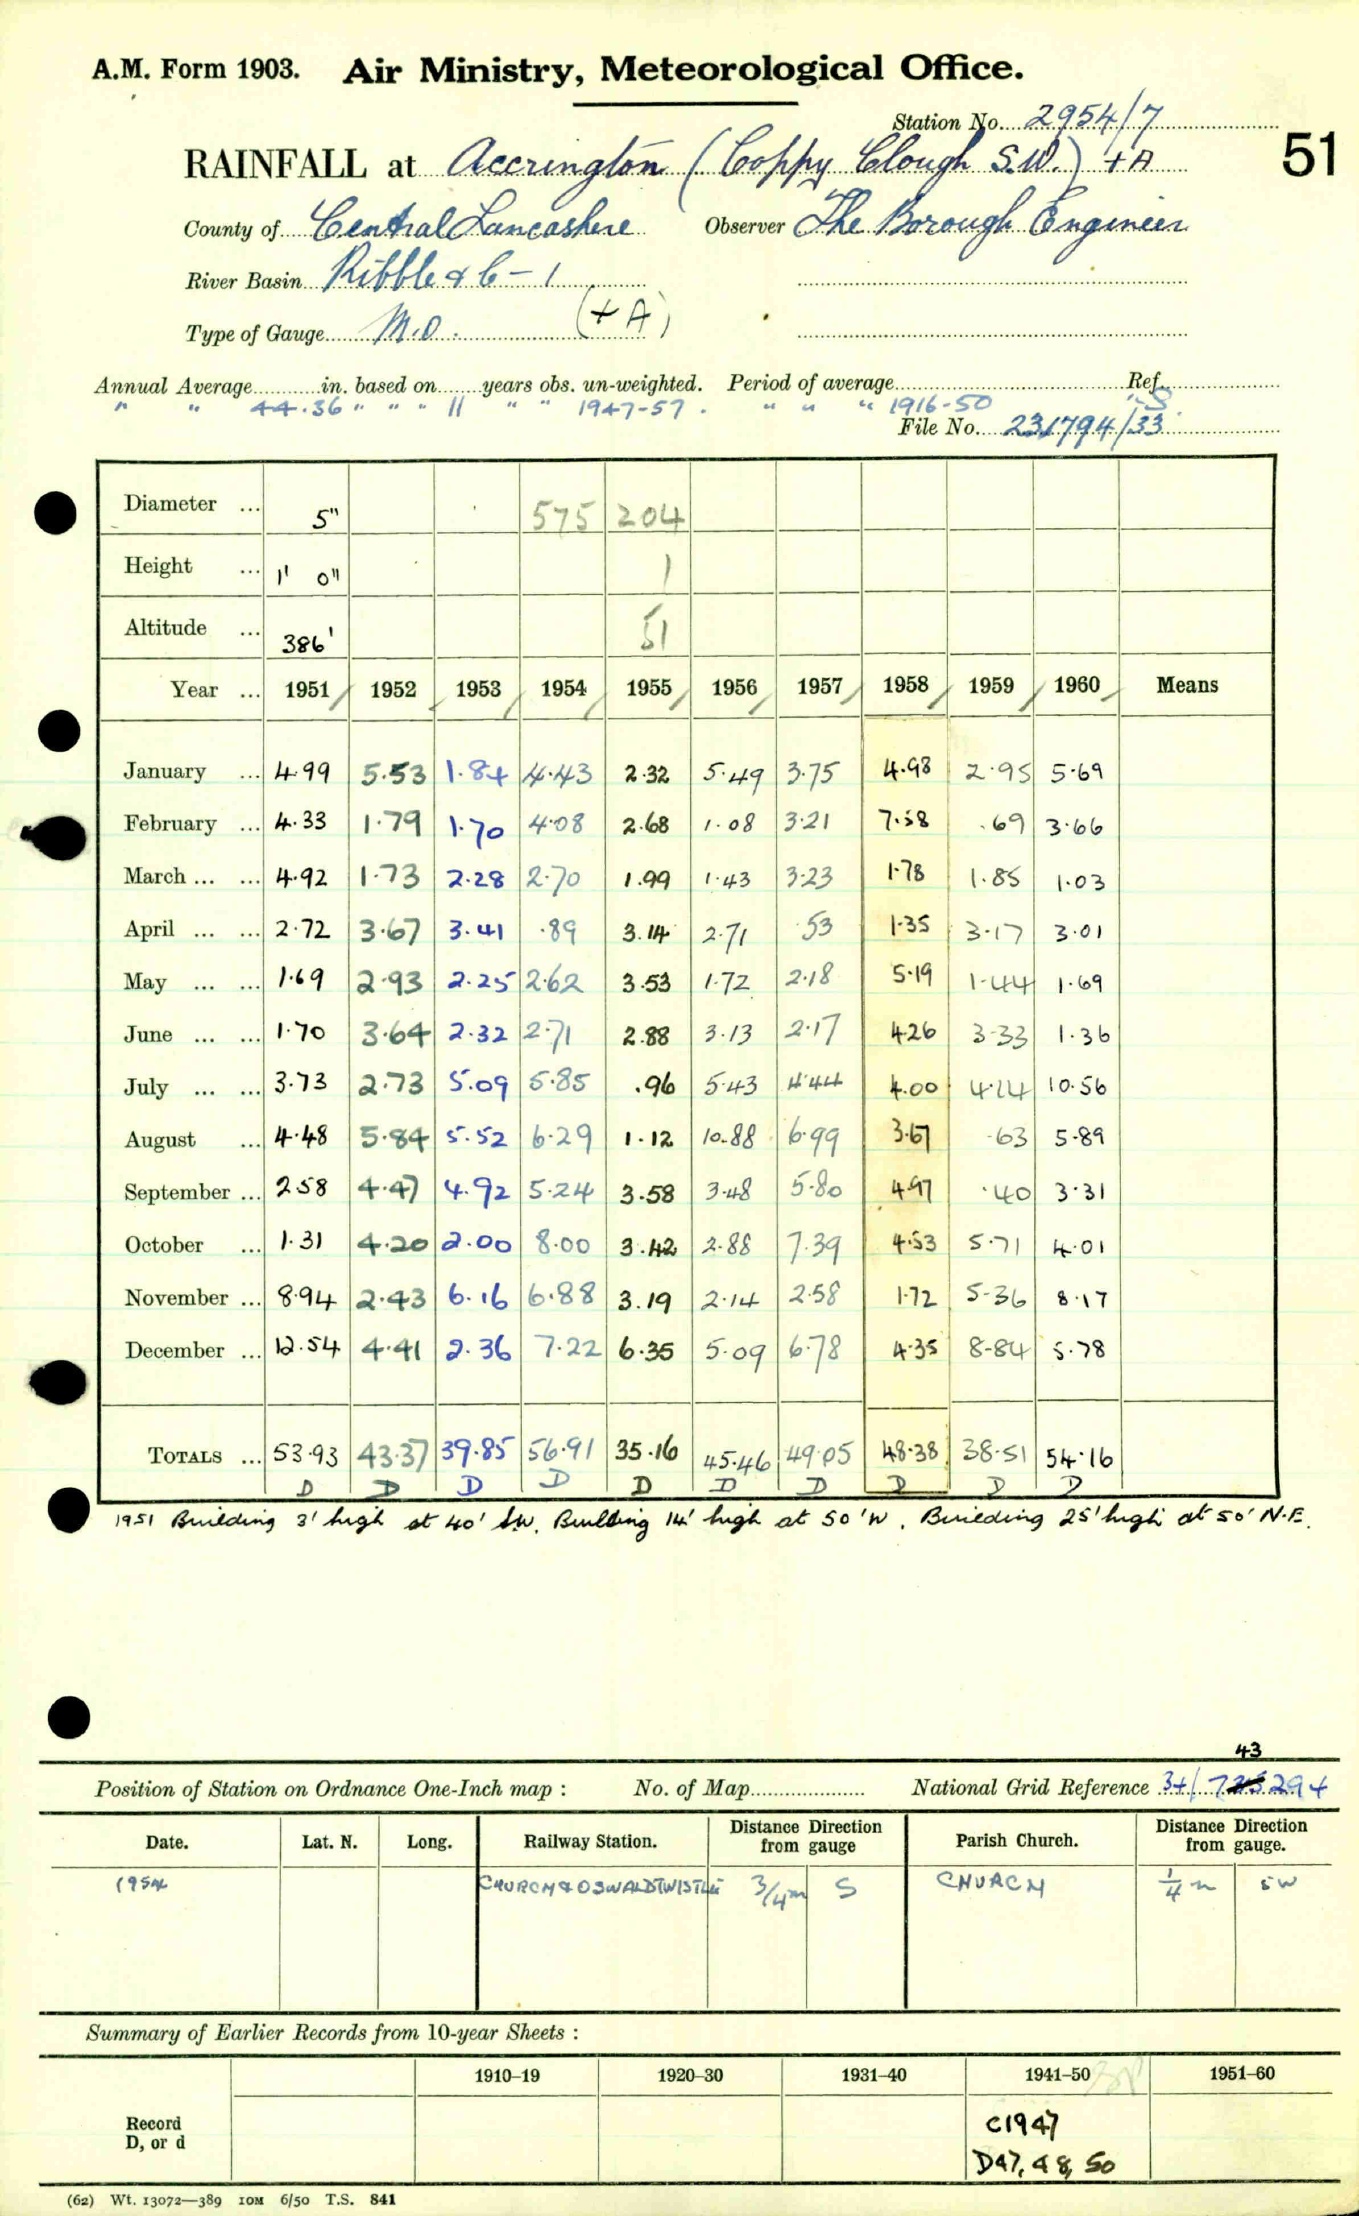 A.M. Form 1903. Air Ministry, Meteorological Office.
Station No. 2954/7
51
RAINFALL at Accrington (Coppy Clough S.W.) +A
County of Central Lancashire Observer The Borough Engineer
River Basin Ribble & C-1
Type of Gauge M.O. (+A)
Annual Average in. based on years obs. un-weighted. Period of average Ref.
" " 44.36 " " " 11 " " 1947-57. " " " 1916-50 "S.
File No. 231794/33
Diameter ... 5" 575 204
Height ... 1' 0" 1
Altitude ... 386' 51
Year ... 1951 1952 1953 1954 1955 1956 1957 1958 1959 1960 Means
January ... 4.99 5.53 1.84 4.43 2.32 5.49 3.75 4.98 2.95 5.69
February ... 4.33 1.79 1.70 4.08 2.68 1.08 3.21 7.58 .69 3.66
March ... ... 4.92 1.73 2.28 2.70 1.99 1.43 3.23 1.78 1.85 1.03
April ... ... 2.72 3.67 3.41 .89 3.14 2.71 .53 1.35 3.17 3.01
May ... ... 1.69 2.93 2.25 2.62 3.53 1.72 2.18 5.19 1.44 1.69
June ... ... 1.70 3.64 2.32 2.71 2.88 3.13 2.17 4.26 3.33 1.36
July ... ... 3.73 2.73 5.09 5.85 .96 5.43 4.44 4.00 4.14 10.56
August ... 4.48 5.84 5.52 6.29 1.12 10.88 6.99 3.67 .63 5.89
September ... 2.58 4.47 4.92 5.24 3.58 3.48 5.80 4.97 .40 3.31
October ... 1.31 4.20 2.00 8.00 3.42 2.88 7.39 4.53 5.71 4.01
November ... 8.94 2.43 6.16 6.88 3.19 2.14 2.58 1.72 5.36 8.17
December ... 12.54 4.41 2.36 7.22 6.35 5.09 6.78 4.35 8.84 5.78
TOTALS ... 53.93 43.37 39.85 56.91 35.16 45.46 49.05 48.38 38.51 54.16
D D D D D D D D D D
1951 Building 3' high at 40' S.W. Building 14' high at 50' W. Building 25' high at 50' N.E.
43
Position of Station on Ordnance One-Inch map : No. of Map National Grid Reference 34/7 294
Date. Lat. N. Long. Railway Station. Distance from gauge Direction Parish Church. Distance from gauge. Direction
1954 CHURCH & OSWALDTWISTLE 3/4 m S CHURCH 1/4 m SW
Summary of Earlier Records from 10-year Sheets :
1910–19 1920–30 1931–40 1941–50 1951–60
Record D, or d
C1947
D47, 48, 50
(62) Wt. 13072—389 IOM 6/50 T.S. 841